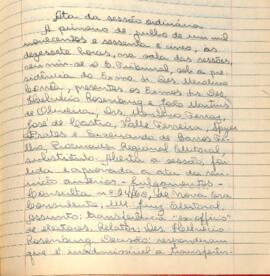 Ata da sessão ordinária
A primeiro de julho de um mil
novecentos e sessenta e cinco, às
dezessete horas, na sala das sessões,
reuniu-se o E. Tribunal, sob a pre-
sidência do Exmo. Sr. Des.
presentes os Exmos. Srs. Des.
Helvécio Rosenburg e João Martins
de Oliveira, Drs.
José de Castro, Valle Ferreira,
e
lho, Procurador Regional Eleitoral,
substituto. Aberta a sessão, foi
lida e aprovada a ata da reu-
nião anterior. Julgamentos -
Consulta nº de Nova Era
Consulente, MM. Juiz Eleitoral.
Assunto: transferência "ex-officio"
de eleitores. Relator: Des. Helvécio
Rosenburg. Decisão: responderam
que é inadmissível a transferên-